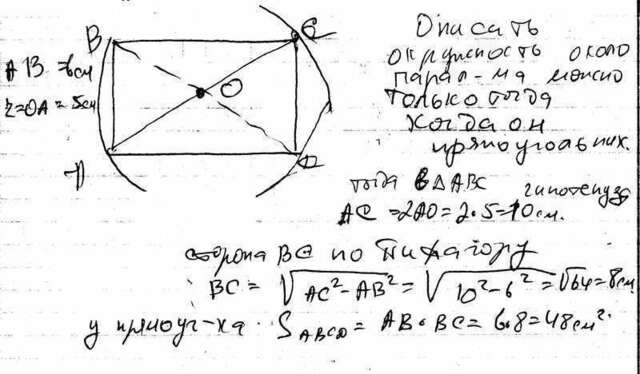 B
C
AB = 6см
O
r = OA = 5см
A
D
Описать
окружность около
парал-ма можно
только тогда
когда он
прямоугольник.
тогда в ΔABC гипотенуза
AC = 2AO = 2·5 = 10см.
сторона BC по Пифагору
BC = √AC² - AB² = √10² - 6² = √64 = 8см
у прямоуг-ка S ABCD = AB · BC = 6·8 = 48см²